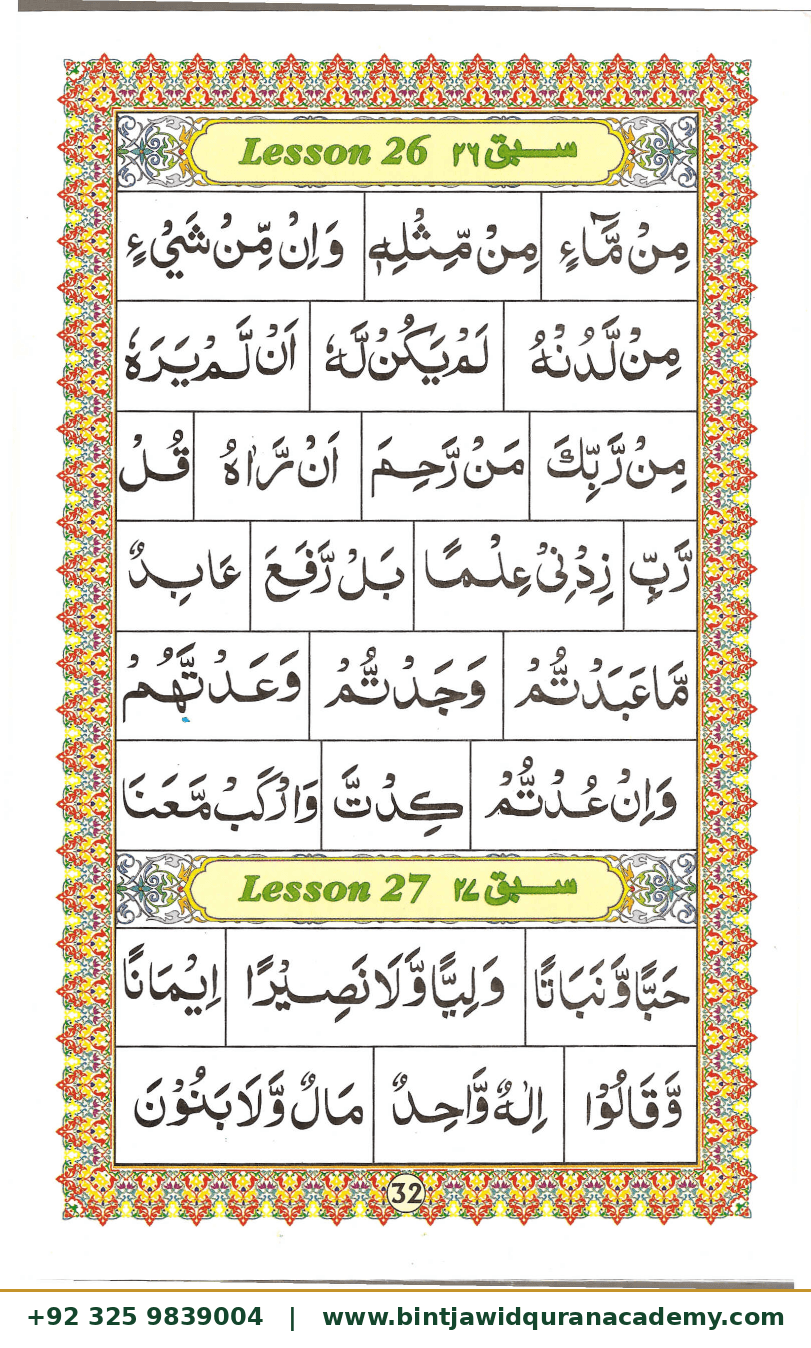 Lesson 26 سبق ۲۶
مِنْ مَّآءٍ مِنْ مِّثْلِهٖ وَاِنْ مِّنْ شَيْءٍ
مِنْ لَّدُنْهُ لَمْ يَكُنْ لَّهٗ اَنْ لَّمْ يَرَهٗ
مِنْ رَّبِّكَ مَنْ رَّحِمَ اَنْ رَّاٰهُ قُلْ
رَّبِّ زِدْنِيْ عِلْمًا بَلْ رَّفَعَ عَابِدٌ
مَّا عَبَدْتُّمْ وَجَدْتُّمْ وَعَدْتَّهُمْ
وَاِنْ عُدْتُّمْ كِدْتَّ وَارْكَبْ مَّعَنَا
Lesson 27 سبق ۲۷
حَبًّا وَّنَبَاتًا وَلِيًّا وَّلَا نَصِيْرًا اِيْمَانًا
وَّقَالُوْا اِلٰهٌ وَّاحِدٌ مَالٌ وَّلَا بَنُوْنَ
32
+92 325 9839004 | www.bintjawidquranacademy.com